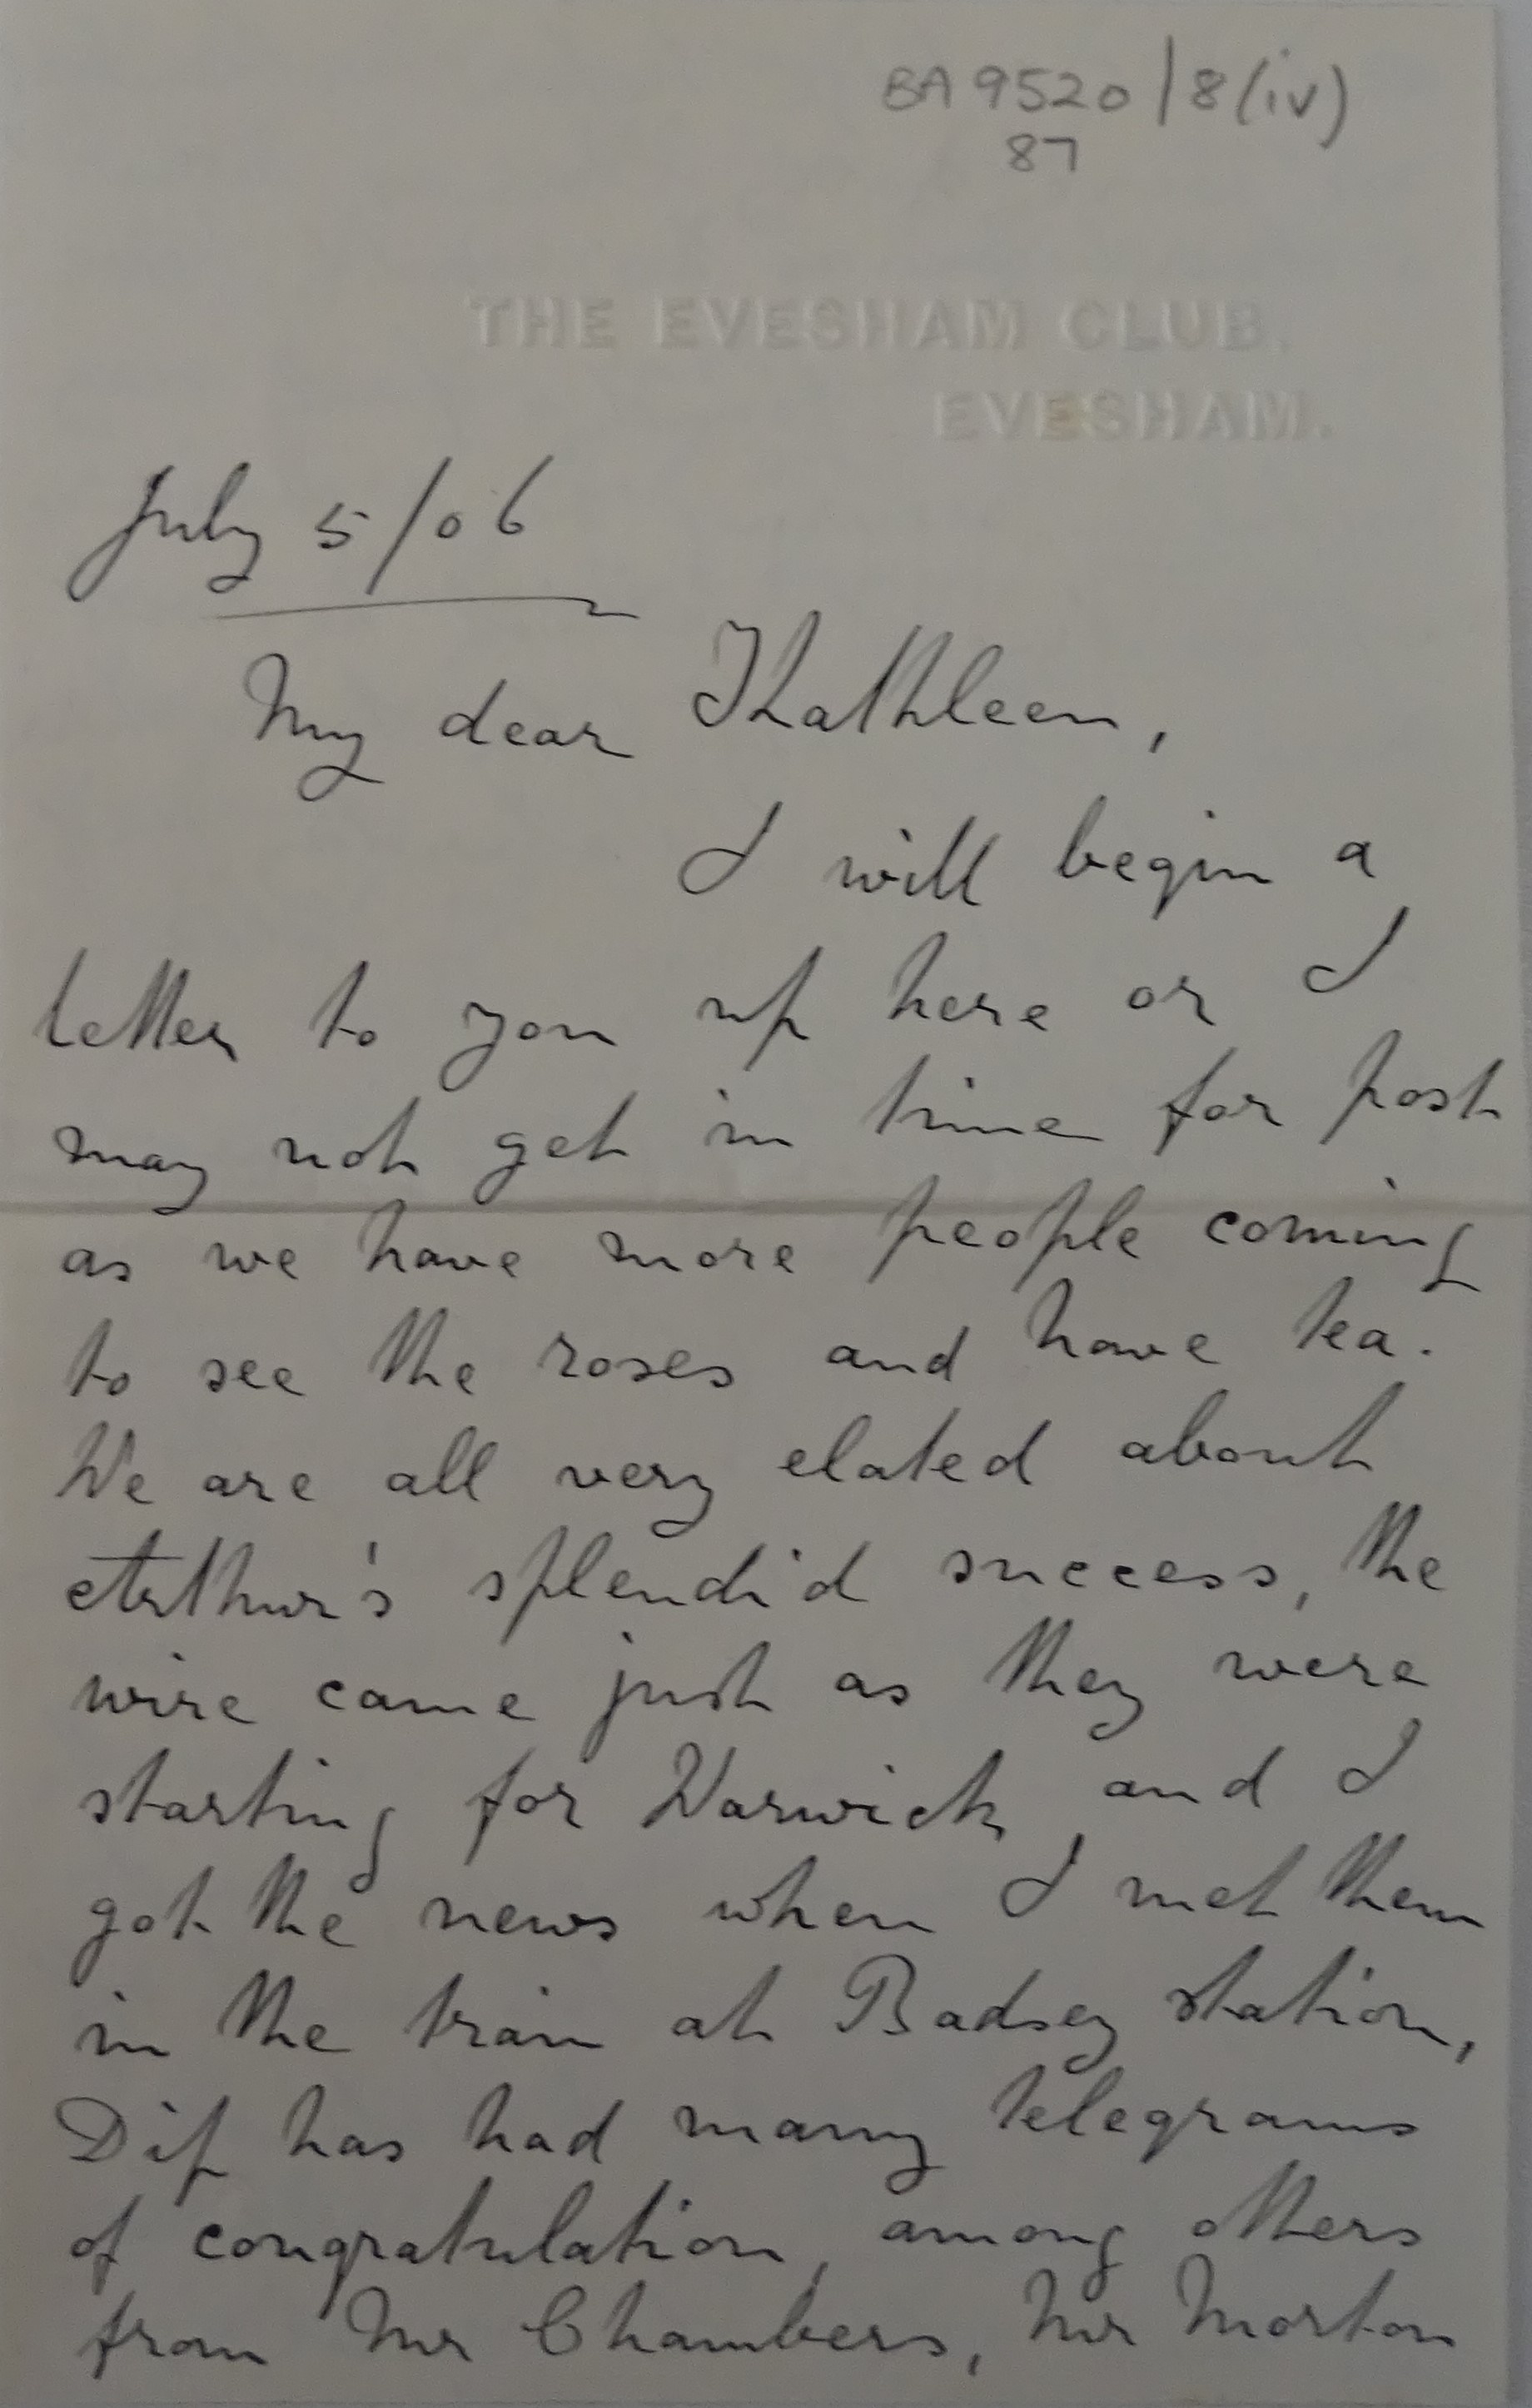 BA 9520/8(iv)
87
THE EVESHAM CLUB.
EVESHAM.
July 5/06
My dear Kathleen,
I will begin a
letter to you up here or I
may not get in time for post
as we have more people coming
to see the roses and have tea.
We are all very elated about
Arthur's splendid success, the
wire came just as they were
starting for Warwick, and I
got the news when I met them
in the train at Badsey station,
Dip has had many telegrams
of congratulation, among others
from Mr Chambers, Mr Morton